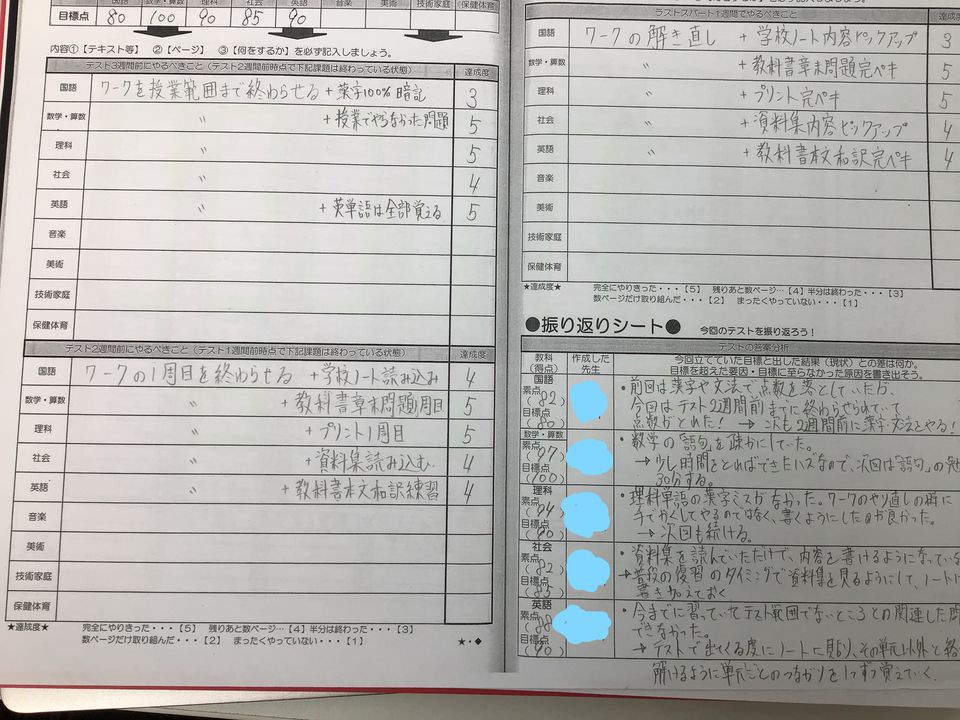 国語 数学・算数 理科 社会 英語 音楽 美術 技術家庭 保健体育
目標点 80 100 90 85 90
内容①【テキスト等】 ②【ページ】 ③【何をするか】を必ず記入しましょう。
テスト3週間前にやるべきこと(テスト2週間前時点で下記課題は終わっている状態) 達成度
国語 ワークを授業範囲まで終わらせる + 漢字100%暗記 3
数学・算数 〃 + 授業でやらなかった問題 5
理科 〃 5
社会 〃 4
英語 〃 + 英単語は全部覚える 5
音楽
美術
技術家庭
保健体育
テスト2週間前にやるべきこと(テスト1週間前時点で下記課題は終わっている状態) 達成度
国語 ワークの1周目を終わらせる + 学校ノート読み込み 4
数学・算数 〃 + 教科書章末問題1周目 5
理科 〃 + プリント1周目 5
社会 〃 + 資料集読み込む 4
英語 〃 + 教科書本文和訳練習 4
音楽
美術
技術家庭
保健体育
★達成度 完全にやりきった・・・【5】 残りあと数ページ…【4】 半分は終わった・・・【3】
数ページだけ取り組んだ・・・【2】 まったくやっていない・・・【1】
★・◆
ラストスパート1週間でやるべきこと 達成
国語 ワークの解き直し + 学校ノート内容ピックアップ 3
数学・算数 〃 + 教科書章末問題完ペキ 5
理科 〃 + プリント完ペキ 5
社会 〃 + 資料集内容ピックアップ 4
英語 〃 + 教科書本文和訳完ペキ 4
音楽
美術
技術家庭
保健体育
★達成度 完全にやりきった・・・【5】 残りあと数ページ…【4】 半分は終わった・・・【3】
数ページだけ取り組んだ・・・【2】 まったくやっていない・・・【1】
●振り返りシート● 今回のテストを振り返ろう!
テストの答案分析
教科(得点) 作成した先生 今回立てていた目標と出した結果(現状)との差は何か。
目標を超えた要因・目標に至らなかった原因を書き出そう。
国語 素点(82) 目標点(80)
・前回は漢字や文法で点数を落としていたが、
今回はテスト2週間前までに終わらせられていて
点数がとれた! → 次も2週間前に漢字・文法をやる!
数学・算数 素点(97) 目標点(100)
・数学の「語句」を疎かにしていた。
→少し時間をとればできたハズなので、次回は「語句」の勉
30分する。
理科 素点(94) 目標点(90)
・理科単語の漢字ミスがなかった。ワークのやり直しの時に
手でかくしてやるのではなく、書くようにしたのが良かった。
→ 次回も続ける。
社会 素点(82) 目標点(85)
・資料集を読んでいただけで、内容を書けるようになっていな
→普段の復習のタイミングで資料集を見るようにして、ノートに
書き加えておく
英語 素点(88) 目標点(90)
・今までに習っていてテスト範囲でないところとの関連した問
できなかった。
→ テストで出てくる度にノートに見取り、その単元以外と絡
解けるように単元ごとのつながりを1つずつ覚えていく。